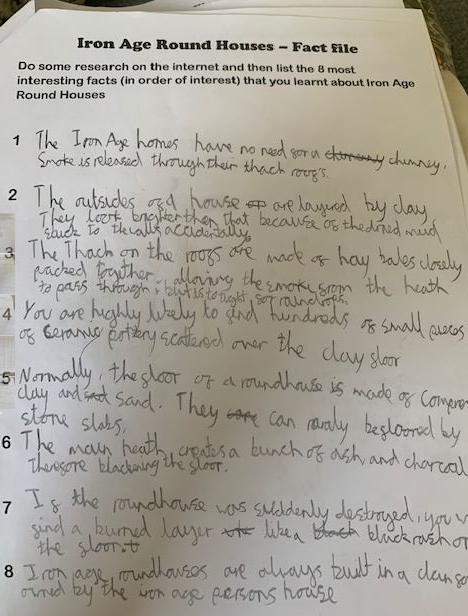 Iron Age Round Houses – Fact file
Do some research on the internet and then list the 8 most
interesting facts (in order of interest) that you learnt about Iron Age
Round Houses
1 The Iron Age homes have no need for a chimney.
Smoke is released through their thach roofs.
2 The outsides of a house are layured by clay
They look brighter then that because of the dried mud
stuck to the walls accidentally
3 The Thach on the roofs are made of hay bales closely
packed together, allowing the smoke from the heath
to pass through, but is to tight for raindrops.
4 You are highly likely to find hundreds of small pieces
of Ceramic pottery scattered over the clay floor
5 Normally, the floor of a roundhouse is made of
clay and sand. They can rarely be floored by
stone slabs.
6 The main heath creates a bunch of ash, and charcoal
therefore blackening the floor.
7 If the roundhouse was suddenly destroyed, you
find a burned layer like a black rash or
the floor.
8 Iron age, roundhouses are always built in a clan
owned by the iron age persons house